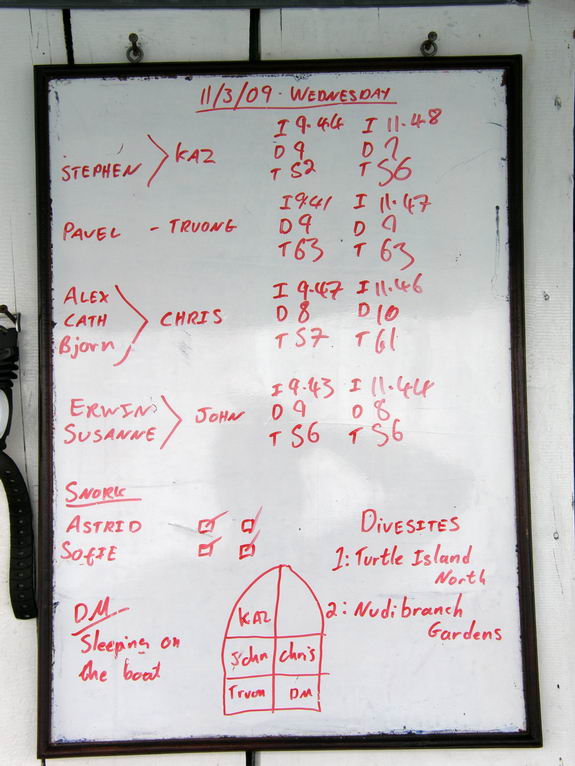 11/3/09 · WEDNESDAY
I 9.44 I 11.48
STEPHEN > KAZ D 9 D 9
T 52 T 56
I 9.41 I 11.47
PAVEL - TRUONG D 9 D 9
T 63 T 63
ALEX I 9.47 I 11.46
CATH > CHRIS D 8 D 10
Bjorn T 57 T 61
I 9.43 I 11.44
ERWIN > JOHN D 9 D 8
SUSANNE T 56 T 56
SNORK
ASTRID ☑ ☑
SOFIE ☑ ☑
DIVESITES
1: Turtle Island
North
2: Nudibranch
Gardens
DM
Sleeping on
the boat
KAZ
John Chris
Truon DM